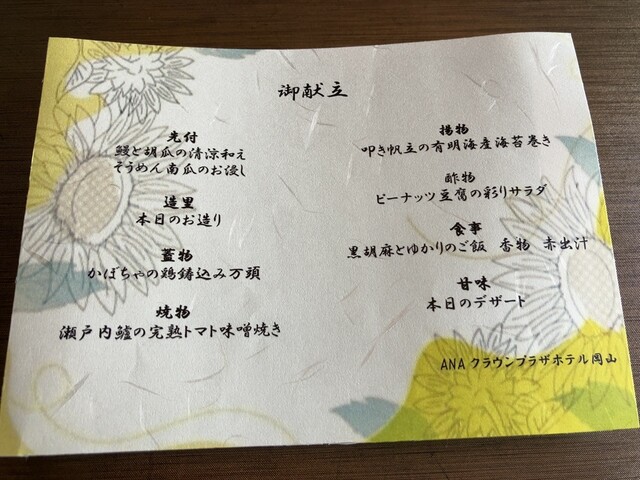 御献立
先付
鰻と胡瓜の清涼和え
そうめん南瓜のお浸し
造里
本日のお造り
蓋物
かぼちゃの鶏鋳込み万頭
焼物
瀬戸内鱸の完熟トマト味噌焼き
揚物
叩き帆立の有明海産海苔巻き
酢物
ピーナッツ豆腐の彩りサラダ
食事
黒胡麻とゆかりのご飯 香物 赤出汁
甘味
本日のデザート
ANAクラウンプラザホテル岡山